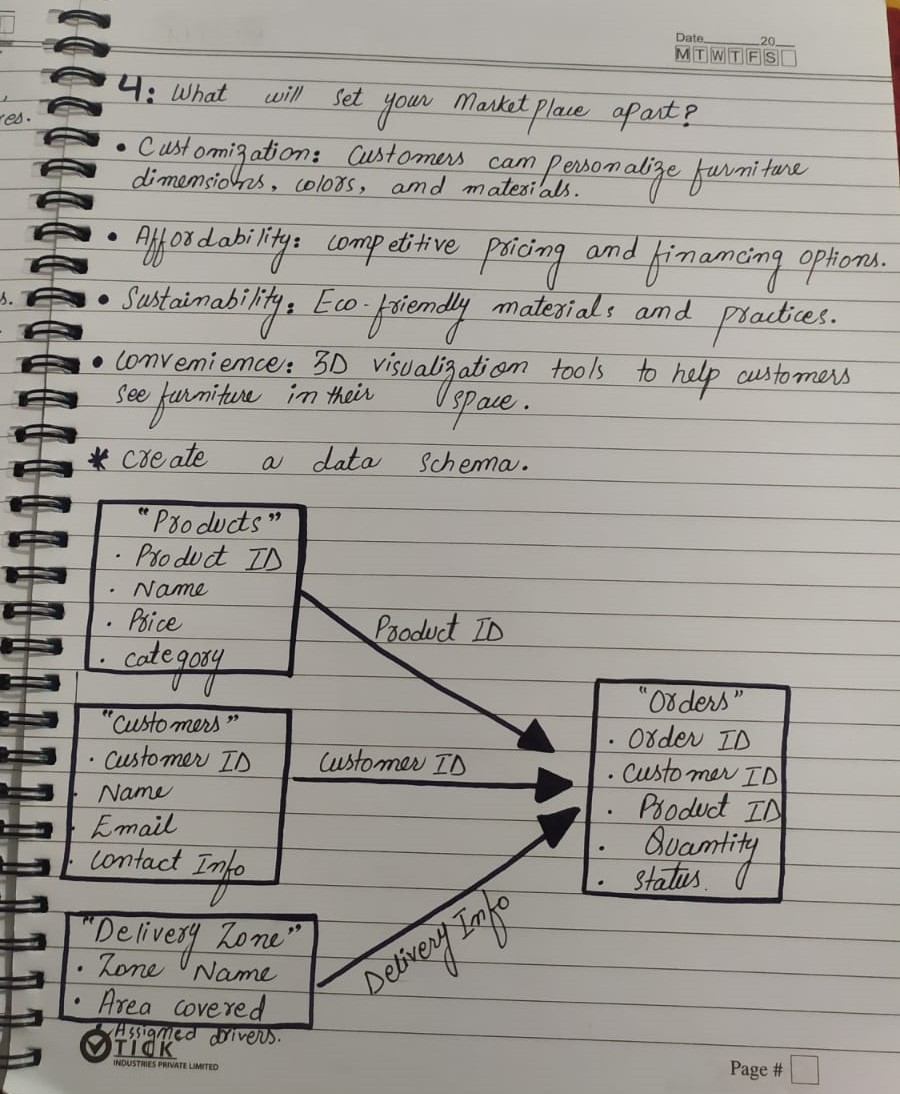 Date 20
M T W T F S
res.
4: What will set your Marketplace apart?
• Customization: Customers can personalize furniture
dimensions, colors, and materials.
• Affordability: competitive pricing and financing options.
s.
• Sustainability: Eco-friendly materials and practices.
• convenience: 3D visualization tools to help customers
see furniture in their space.
* create a data schema.
"Products"
• Product ID
• Name
• Price
• category
Product ID
"Customers"
• Customer ID
• Name
• Email
• contact Info
Customer ID
"Orders"
• Order ID
• Customer ID
• Product ID
• Quantity
• status.
"Delivery Zone"
• Zone Name
• Area covered
• Assigned drivers.
Delivery Info
TICK
INDUSTRIES PRIVATE LIMITED
Page #